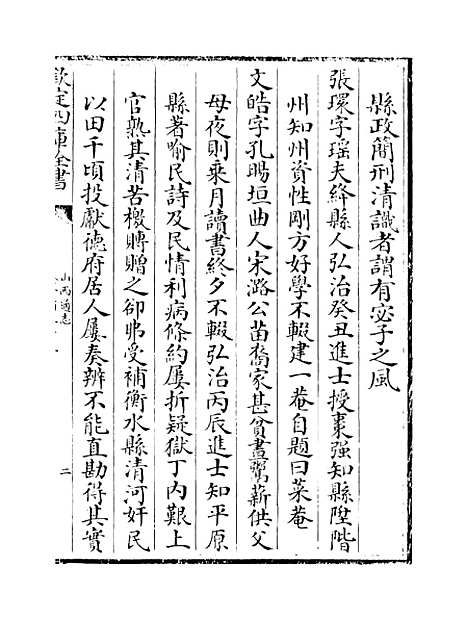 縣政簡刑清識者謂有宓子之風
張環字瑶夫絳縣人弘治癸丑進士授棗强知縣陞階
州知州資性剛方好學不輟建一菴自題曰菜菴
文皓字孔暘垣曲人宋潞公苗裔家甚貧晝鬻薪供父
母夜則乘月讀書終夕不輟弘治丙辰進士知平原
縣著喻民詩及民情利病條約屢折疑獄丁内艱上
官熟其清苦檄賻贈之卻弗受補衡水縣清河奸民
以田千頃投獻德府居人屢奏辨不能直勘得其實
欽定四庫全書
山西通志
二